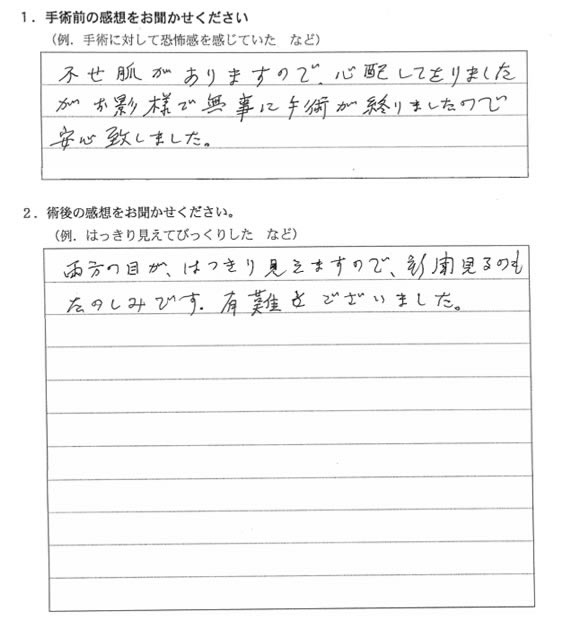 1．手術前の感想をお聞かせください
（例．手術に対して恐怖感を感じていた　など）
不せ脈がありますので、心配しておりました
がお影様で無事に手術が終りましたので
安心致しました。
2．術後の感想をお聞かせください。
（例．はっきり見えてびっくりした　など）
両方の目が、はっきり見えますので、新聞見るのも
たのしみです．有難とございました。